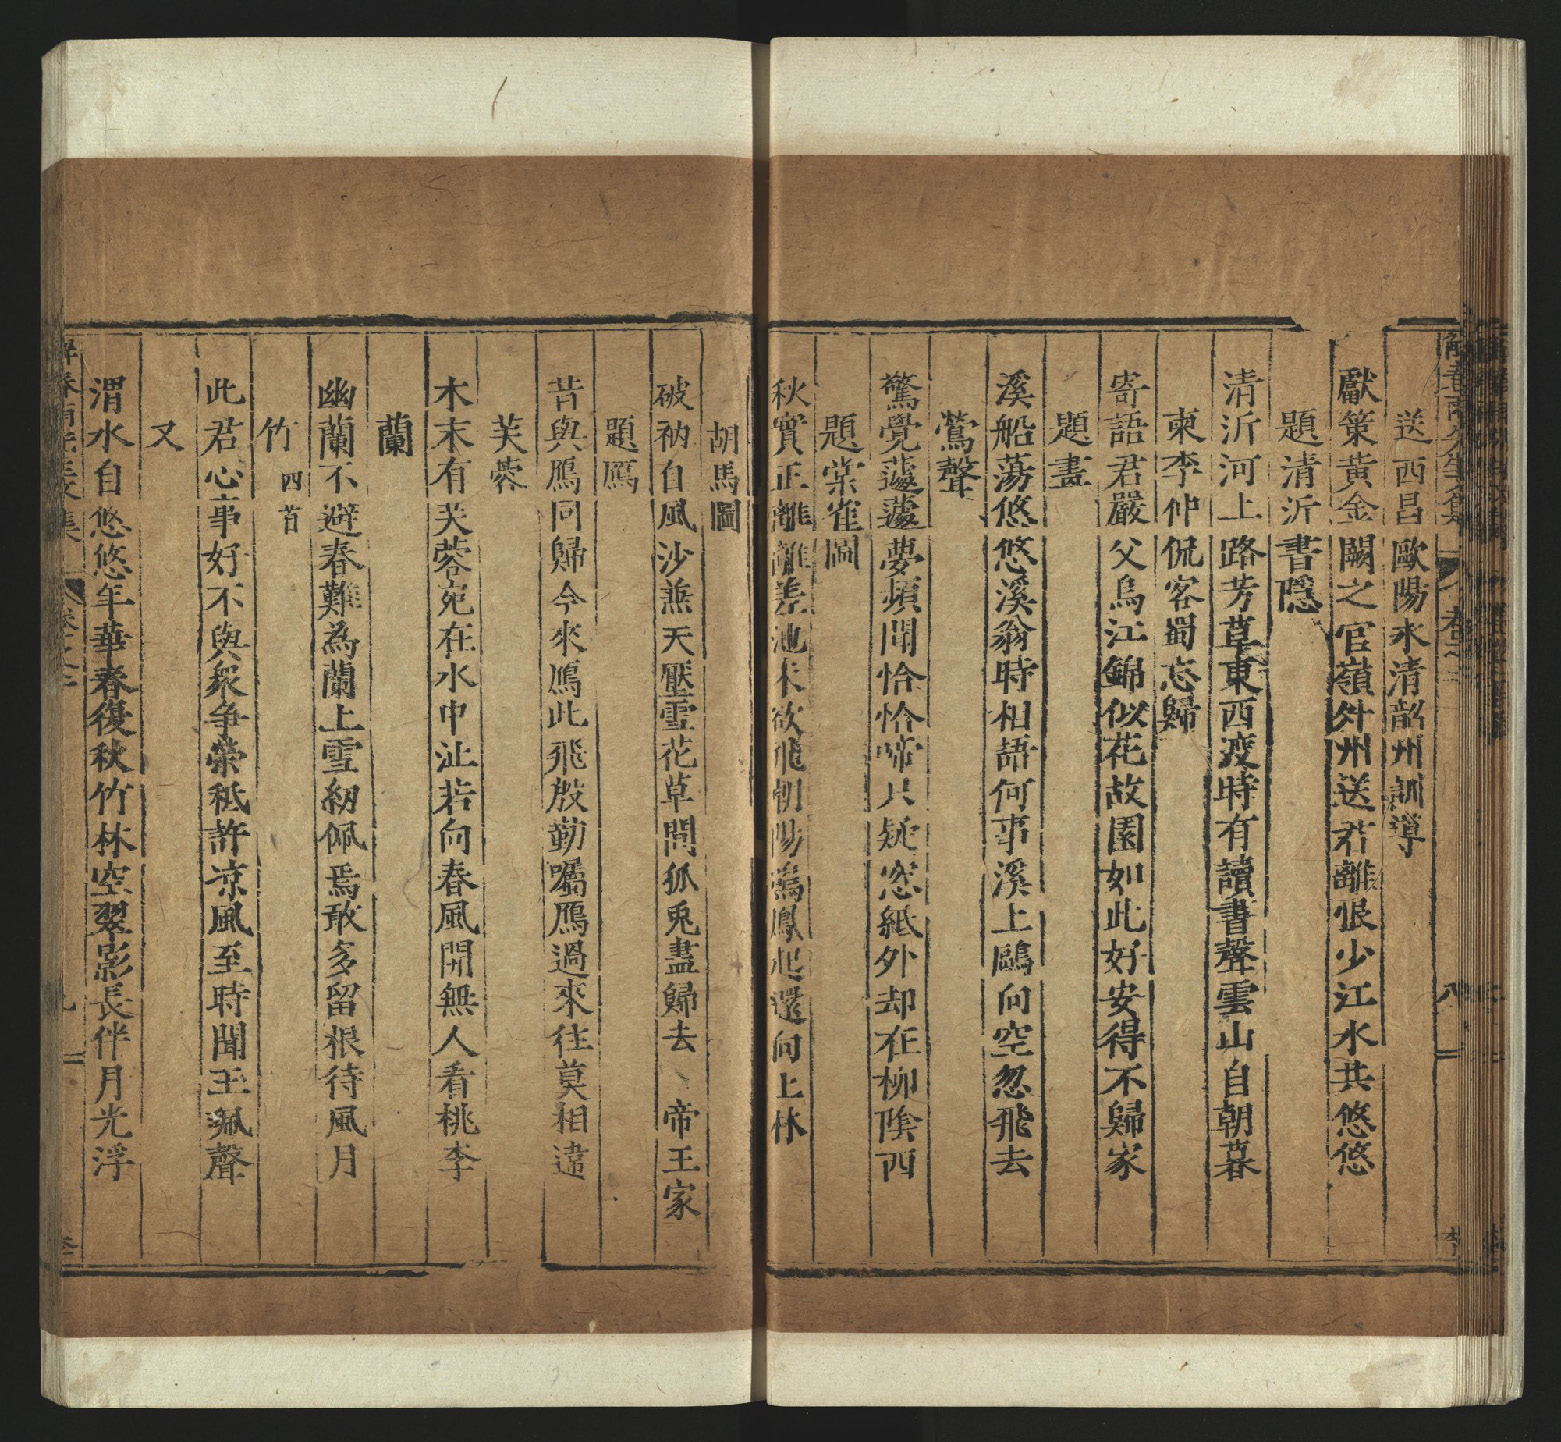 送西昌歐陽永清韶州訓導
獻策黃金闕之官嶺外州送君離恨少江水共悠悠
題清沂書隱
清沂河上路芳草東西渡時有讀書聲雲山自朝暮
柬李仲侃客蜀忘歸
寄語君嚴父烏江錦似花故園如此好安得不歸家
題畫
溪船蕩悠悠溪翁時相語何事溪上鷗向空忽飛去
鶯聲
驚覺蘧蘧夢頻聞恰恰啼只疑窓紙外却在柳陰西
題棠雀圖
秋實正離離差池未欲飛朝陽鳳起還向上林
胡馬圖
破衲自風沙燕天壓雪花草間狐兎盡歸去帝王家
題鴈
昔與鴈同歸今來鴈此飛殷勤囑鴈過來往莫相違
芙蓉
木末有芙蓉宛在水中沚若向春風開無人看桃李
蘭
幽蘭不避春難為蘭上雪紉佩焉敢多留根待風月
竹 四首
此君心事好不與衆争榮秪許凉風至時聞玉珮聲
又
渭水自悠悠年華春復秋竹林空翠影長伴月光浮